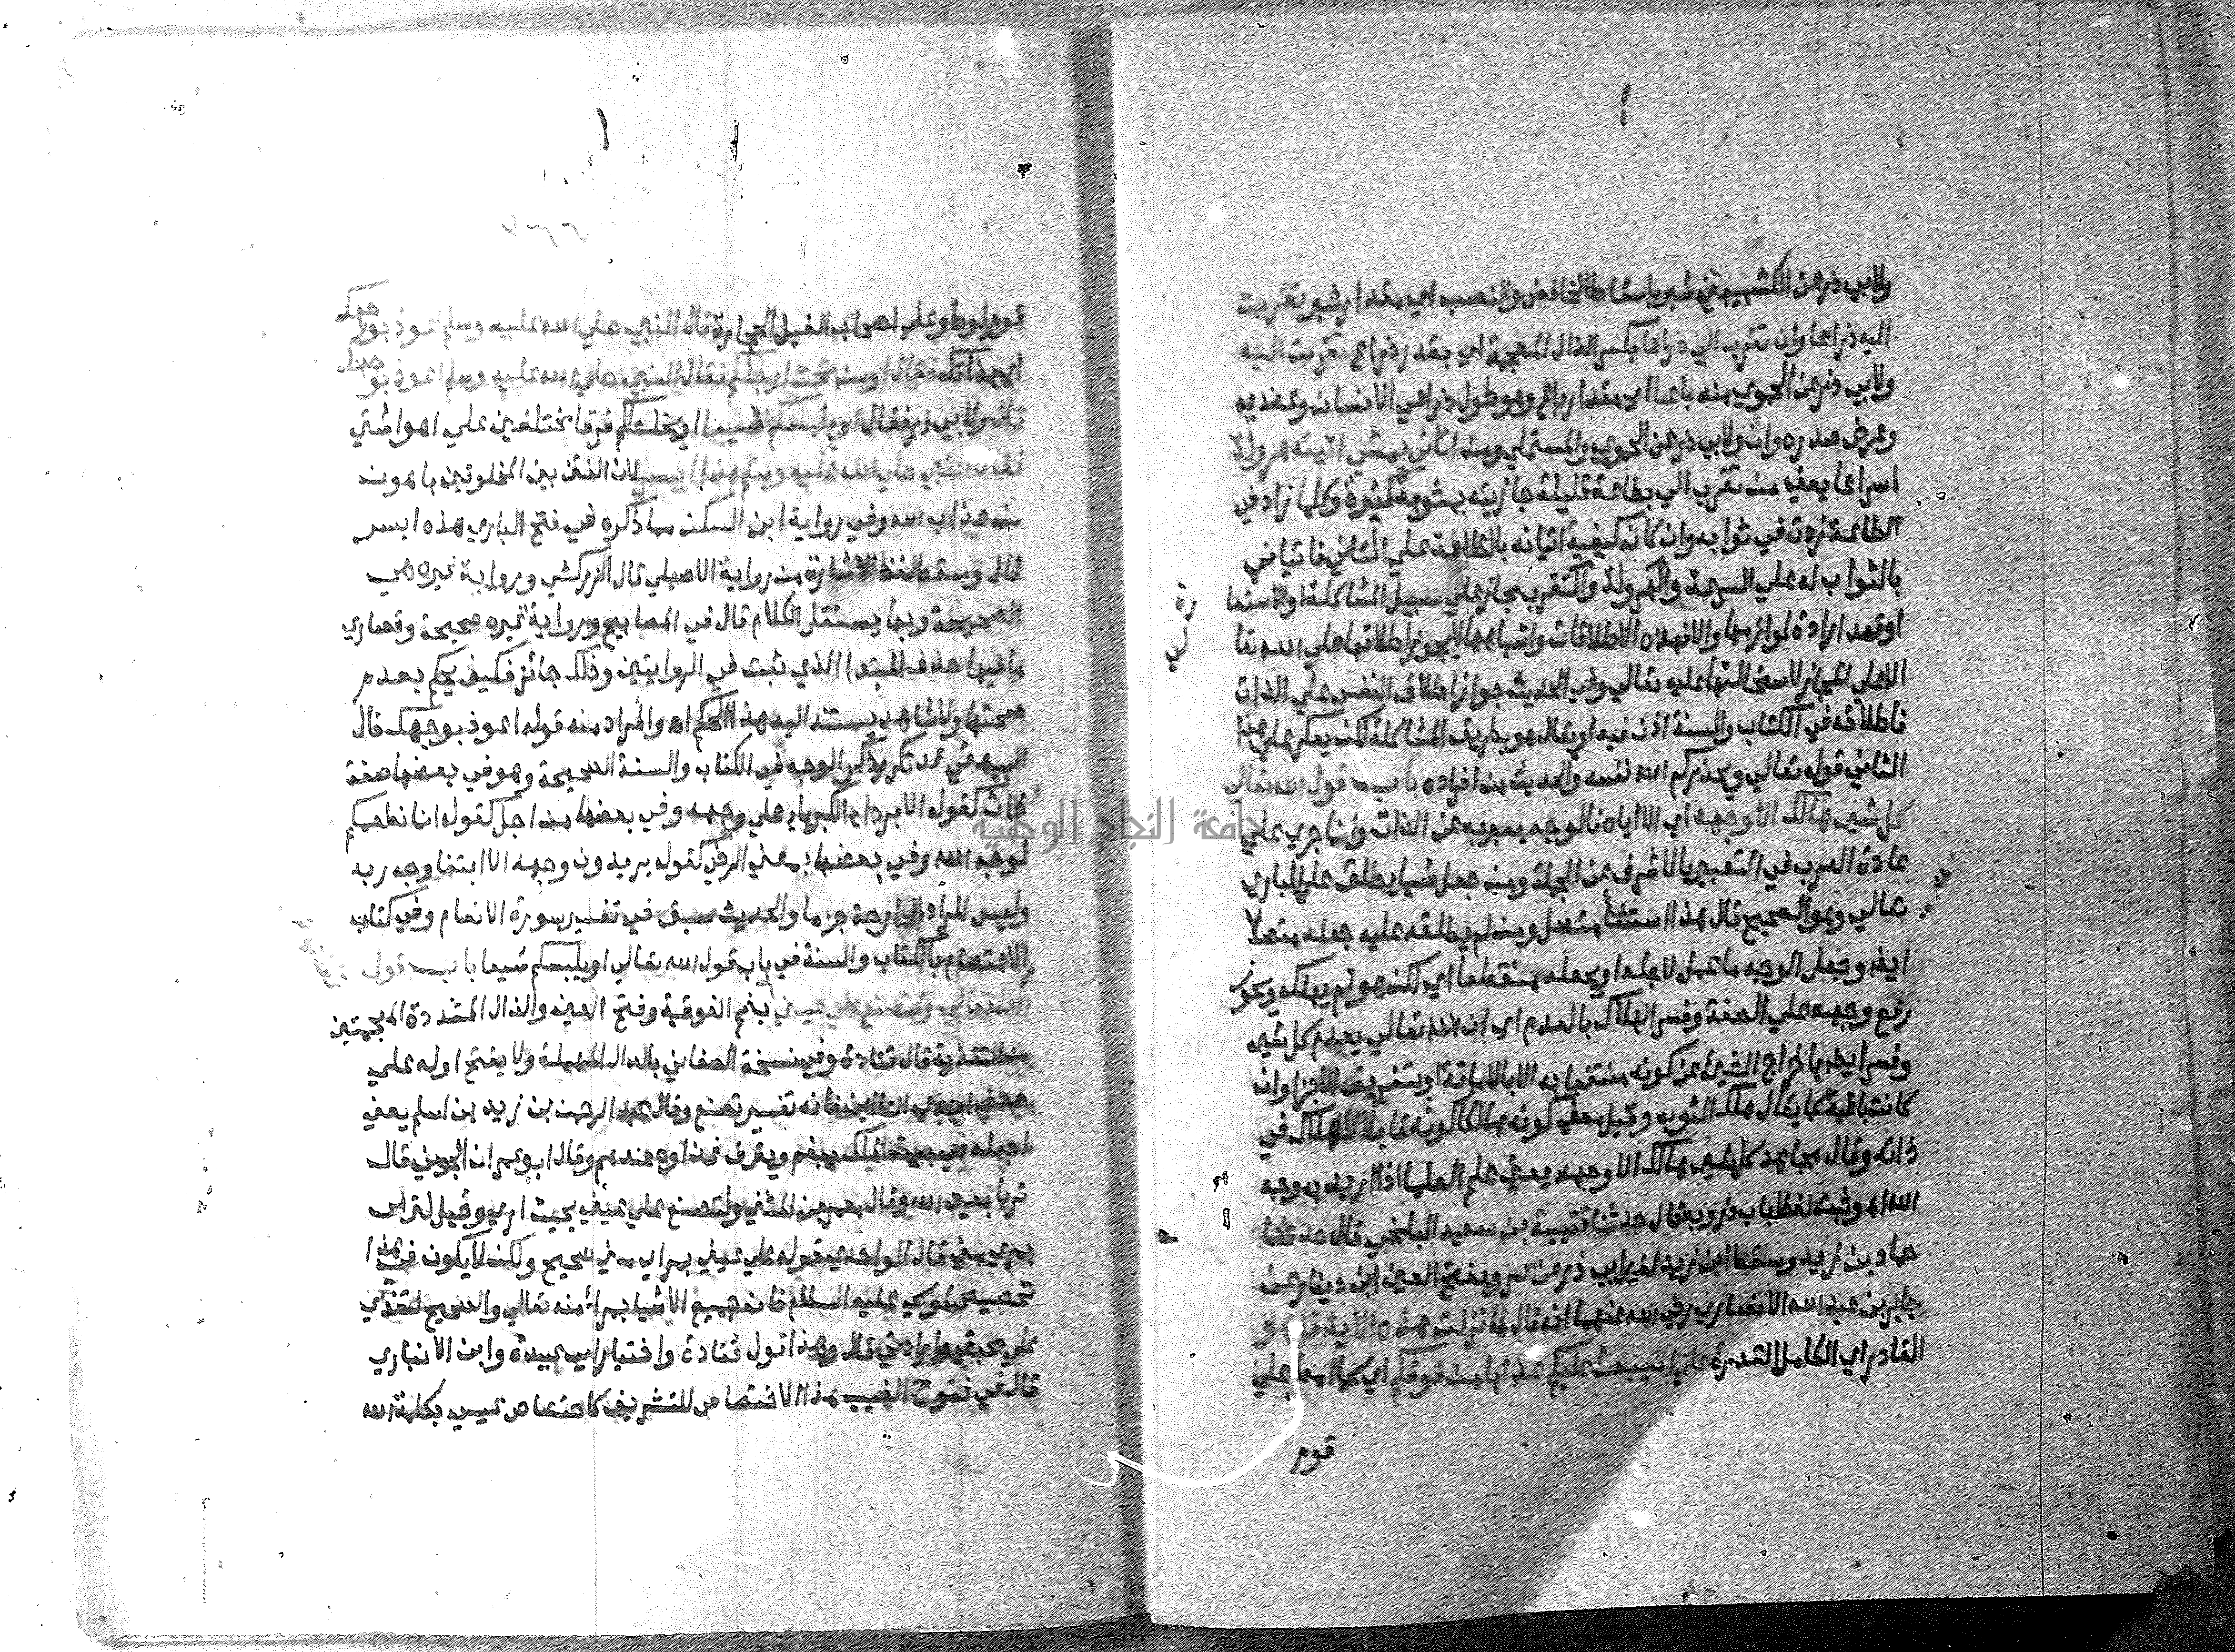 ولابي ذر عن الكشميهني شبر باسقاط الخافض والنصب اي مقدار شبر تقربت
اليه ذراعا وان تقرب الي ذراعا بكسر الذال المعجمة اي بقدر ذراع تقربت اليه
ولابي ذر عن الحموي منه باعا اي مقدار باع وهو طول ذراعي الانسان وعضديه
وعرض صدره وان ولابي ذر عن الحموي والمستملي ومن اتاني يمشي اتيته هرولة
اسراعا يعني من تقرب الي بطاعة قليلة جازيته بمثوبة كثيرة وكلما زاد في
الطاعة زدت في ثوابه وان كان كيفية اتيانه بالطاعة علي التاني فاتياني
بالثواب له علي السرعة والهرولة والتقرب مجاز علي سبيل المشاكلة او الاستعا
رة
او قصد ارادة لوازمها والا فهذه الاطلاقات واشباهها لا يجوز اطلاقها علي الله تعا
لي
الا علي المجاز لاستحالتها عليه تعالي وفي الحديث جواز اطلاق النفس علي الذات
فاطلاقه في الكتاب والسنة اذن فيه او يقال هو بطريق المشاكلة لكن يعكر علي هذا
الثاني قوله تعالي ويحذركم الله نفسه والحديث من افراده باب قول الله تعالي
كل شي هالك الا وجهه اي الا اياه فالوجه يعبر به عن الذات وانما جري علي
عادة العرب في التعبير بالاشرف عن الجملة ومن جعل شيا يطلق علي الباري
تعالي وهو الصحيح قال هذا استثناء متصل ومن لم يطلقه عليه جعله متصلا
ايضا وجعل الوجه ما عمل لاجله او يجعله منقطعا اي لكن هو لم يهلك ويجوز
رفع وجهه علي الصفة وفسر الهلاك بالعدم اي ان الله تعالي يعدم كل شي
وفسر ايضا باخراج الشيء عن كونه منتفعا به الا بالاماتة او بتفريق الاجزا وان
كانت باقية كما يقال هلك الثوب وقيل معني كونه هالكا كونه قابلا للهلاك في
ذاته وقال مجاهد كل شي هالك الا وجهه يعني علم العلما اذا اريد به وجه
الله اه وثبت لفظ باب ذر وبه قال حدثنا قتيبة بن سعيد البلخي قال حدثنا
حماد بن زيد وسقط ابن زيد لغير ابي ذر عن عمرو بفتح العين ابن دينار عن
جابر بن عبد الله الانصاري رضي الله عنهما انه قال لما نزلت هذه الاية قل هو
القادر اي الكامل القدرة علي ان يبعث عليكم عذابا من فوقكم اي كما امطر علي
قوم
قوم لوط وعلي اصحاب الفيل الحجارة قال النبي صلي الله عليه وسلم اعوذ بوجهك
اي بذاتك فقال او من تحت ارجلكم فقال النبي صلي الله عليه وسلم اعوذ بوجهك
قال ولابي ذر فقال او يلبسكم شيعا او يخلطكم فرقا مختلفين علي اهوا شتي
فقال النبي صلي الله عليه وسلم هذا ايسر لان الفتن بين المخلوقين باهون
من عذاب الله وفي رواية ابن السكن مما ذكره في فتح الباري هذه ايسر
قال وسقط لفظ الاشارة من رواية الاصيلي قال الزركشي ورواية غيره هي
الصحيحة وبها يستقل الكلام قال في المصابيح ورواية غيره صحيحة وقصاري
ما فيها حذف المبتدا الذي ثبت في الروايتين وذلك جائز فكيف يحكم بعدم
صحتها ولا شاهد يستند اليه هذا الحكم اه والمراد منه قوله اعوذ بوجهك قال
البيهقي قد تكرر ذكر الوجه في الكتاب والسنة الصحيحة وهو في بعضها صفة
ذات كقوله الا برداء الكبرياء علي وجهه وفي بعضها من اجل كقوله انما نطعمكم
لوجه الله وفي بعضها بمعني الرضي كقوله يريدون وجهه الا ابتغا وجه ربه
وليس المراد الجارحة جزما والحديث سبق في تفسير سورة الانعام وفي كتاب
الاعتصام بالكتاب والسنة في باب قول الله تعالي او يلبسكم شيعا باب قول
الله تعالي ولتصنع علي عيني بضم الفوقية وفتح الغين والذال المشددة المعجمتين
من التغذية قال قتادة وفي نسخة الصغاني بالدال المهملة ولا يفتح اوله علي
حذف احدي التاين فانه تفسير تصنع وقال عبد الرحمن بن زيد بن اسلم يعني
اجعله في بيت الملك ينعم ويترف غذاوه عندهم وقال ابو عمران الجوني قال
تربا بعين الله وقال معمر بن المثني ولتصنع علي عيني بحيث اري وقيل لتراس
بمري مني قال الواحدي قوله علي عيني بمراي مني صحيح ولكن لا يكون في هذا
تخصيص لموسي عليه السلام فان جميع الاشيا بمرأ منه تعالي والصحيح لتغذي
علي محبتي وارادتي قال وهذا قول قتادة واختيار ابي عبيدة وابن الانباري
قال في فتوح الغيب هذا الاختصاص للتشريف كاختصاص عيسي بكلمة الله
جامعة النجاح الوطنية